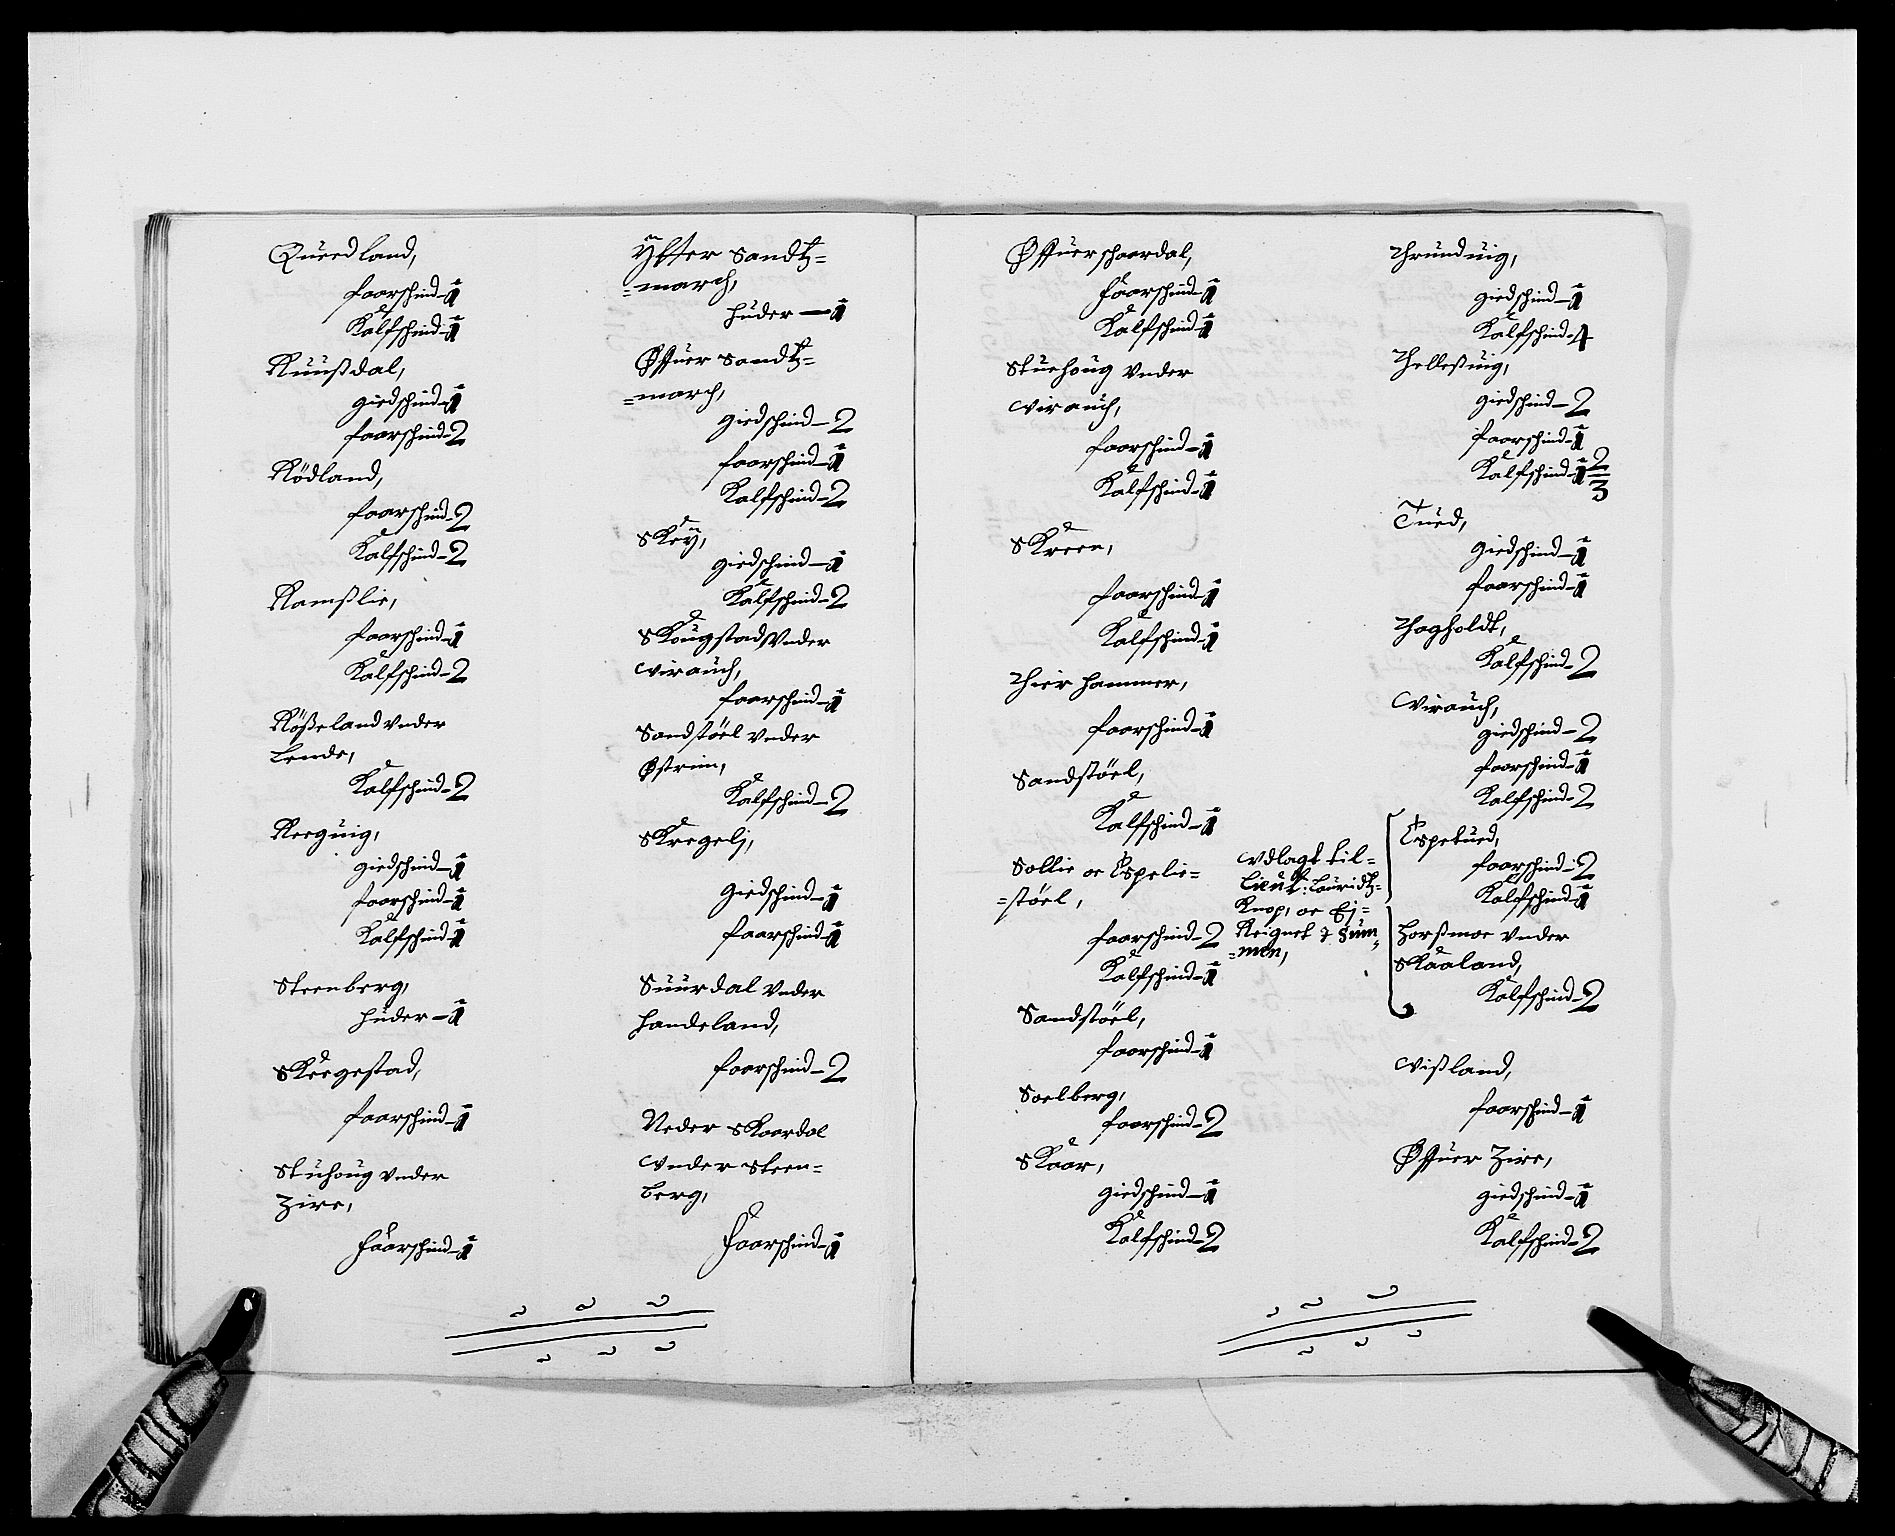 Queedland,
faarschind - 1
Kalfschind - 1
Ruusdal,
giedschind - 1
faarschind - 2
Rödland,
faarschind - 2
Kalfschind - 2
Ramslie,
faarschind - 1
Kalfschind - 2
Rösseland vnder
Lende,
Kalfschind - 2
Reeguig,
giedschind - 1
faarschind - 1
Kalfschind - 1
Steenberg,
huder - 1
Skeegestad,
faarschind - 1
Stuhoug vnder
Zire,
faarschind - 1
Ytter Sandtz=
=march,
huder - 1
Øffuer Sandtz=
=march,
giedschind - 2
faarschind - 1
Kalfschind - 2
Skeÿ,
giedschind - 1
Kalfschind - 2
Skougstad Vnder
Virauch,
faarschind - 1
Sandstöel vnder
Østrim,
Kalfschind - 2
Skregelj,
giedschind - 1
faarschind - 1
Suurdal vnder
handeland,
faarschind - 2
Neder Skaardal
Vnder Steen=
berg,
faarschind - 1
Øffuerschaardal,
faarschind - 1
Kalfschind - 1
Stuehoug vnder
Virauch,
faarschind - 1
Kalfschind - 1
Skreen,
faarschind - 1
Kalfschind - 1
Thier hammer,
faarschind - 1
Sandstöel,
Kalfschind - 1
Sollie oc Espelie=
=stöel,
faarschind - 2
Kalfschind - 1
Sandstöel,
faarschind - 1
Soelberg,
faarschind - 2
Skaar,
giedschind - 1
Kalfschind - 2
Thrunduig,
giedschind - 1
Kalfschind - 4
Thellesuig,
giedschind - 2
faarschind - 1
Kalfschind - 1 2/3
Tued,
giedschind - 1
faarschind - 1
Thagholdt,
Kalfschind - 2
Virauch,
giedschind - 2
faarschind - 1
Kalfschind - 2
Vdlagt til=
Lieut: Lauridtz=
Knop, oc Ej=
Reignet J Sum
=men,
Espetued,
faarschind - 2
Kalfschind - 1
Horsmoe vnder
Skaaland,
Kalfschind - 2
Visland,
faarschind - 1
Øffuer Zire,
giedschind - 1
Kalfschind - 2